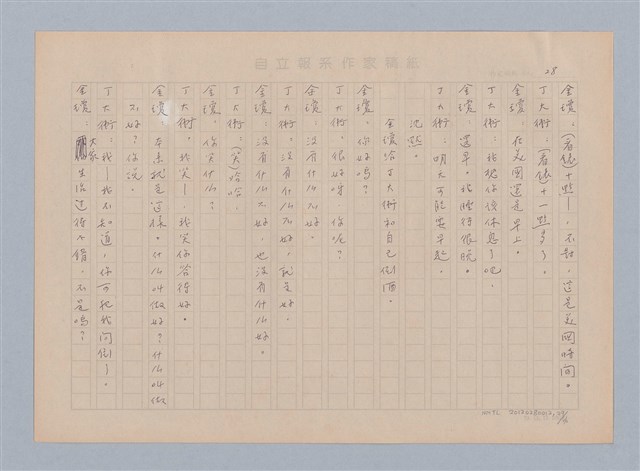 自立報系作家稿紙
28
金瓊：（看錶）十點—，不對，這是美國時間。
丁大衛：（看錶）十一點多了。
金瓊：在美國還是早上。
丁大衛：我想你該休息了吧。
金瓊：還早。我睡得很晚。
丁大衛：明天可能要早起。
沈默。
金瓊給丁大衛和自己倒酒。
金瓊：你好嗎？
丁大衛：很好呀，你呢？
金瓊：沒有什么好。
丁大衛：沒有什么不好，就是好。
金瓊：沒有什么不好，也沒有什么好。
丁大衛：（笑）哈哈
金瓊：你笑什么？
丁大衛：我笑—，我笑你答得好。
金瓊：本來就是這樣。什么叫做好？什么叫做
不好？你說。
丁大衛：我—我不知道，你可把我問倒了。
金瓊：大家生活過得不錯，不是嗎？